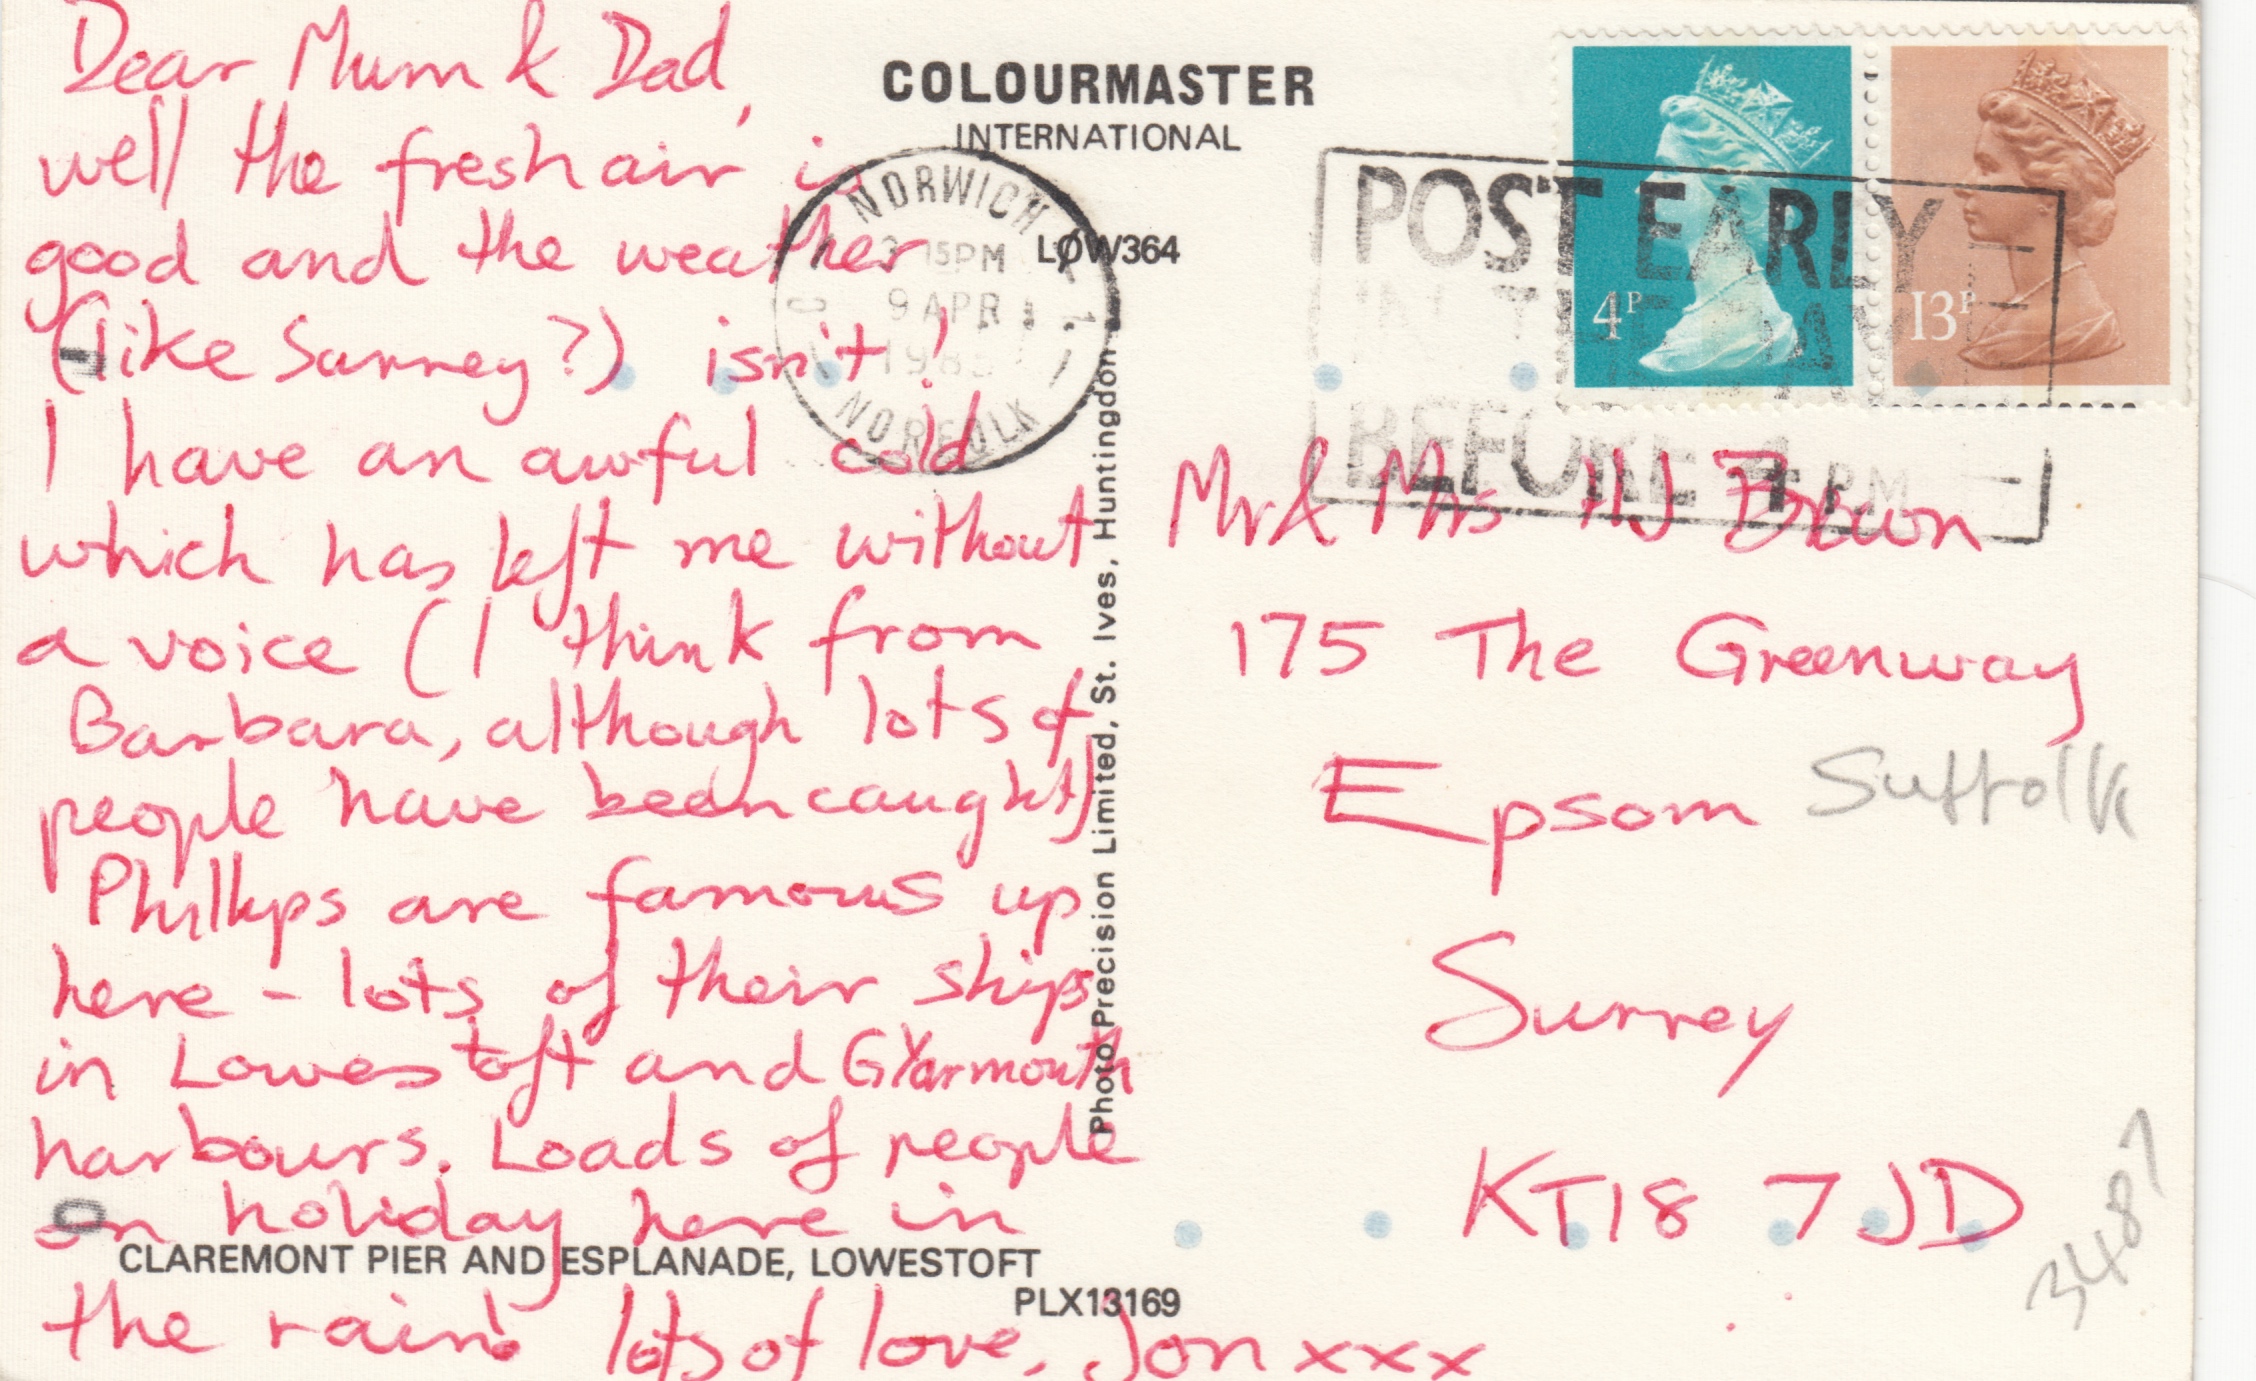 Dear Mum & Dad,
well the fresh air is
good and the weather
(like Surrey?) isn't!
I have an awful cold
which has left me without
a voice (I think from
Barbara, although lots of
people have been caught)
Phillips are famous up
here - lots of their ships
in Lowestoft and G Yarmouth
harbours. Loads of people
on holiday here in
the rain! lots of love, Jon xxx
CLAREMONT PIER AND ESPLANADE, LOWESTOFT
PLX13169
COLOURMASTER
INTERNATIONAL
LOW364
Photo Precision Limited, St. Ives, Huntingdon
NORWICH
15PM
9 APR
NORFOLK
POST EARLY
IN THE DAY
BEFORE 4 PM
4P
13P
Mr & Mrs HJ Brown
175 The Greenway
Epsom Suffolk
Surrey
KT18 7JD
3487